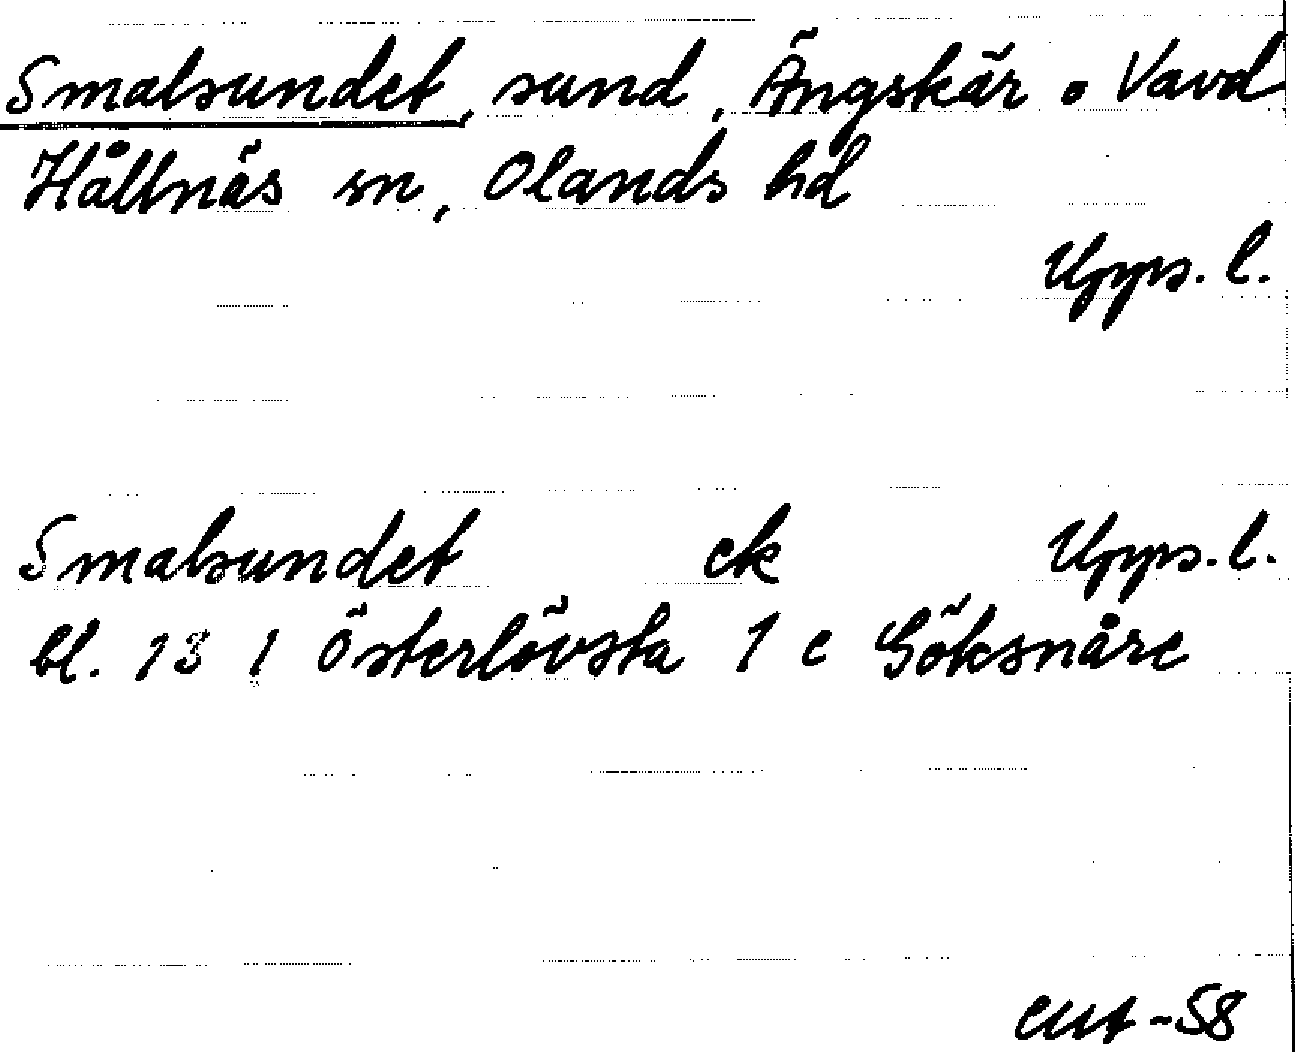 Smalsundet, sund, Ängskär o Vavd
Hållnäs sn, Olands hd
Upps. l.
Smalsundet ek Upps. l.
bl. 13 1 Österlövsta 1 e Göksnåre